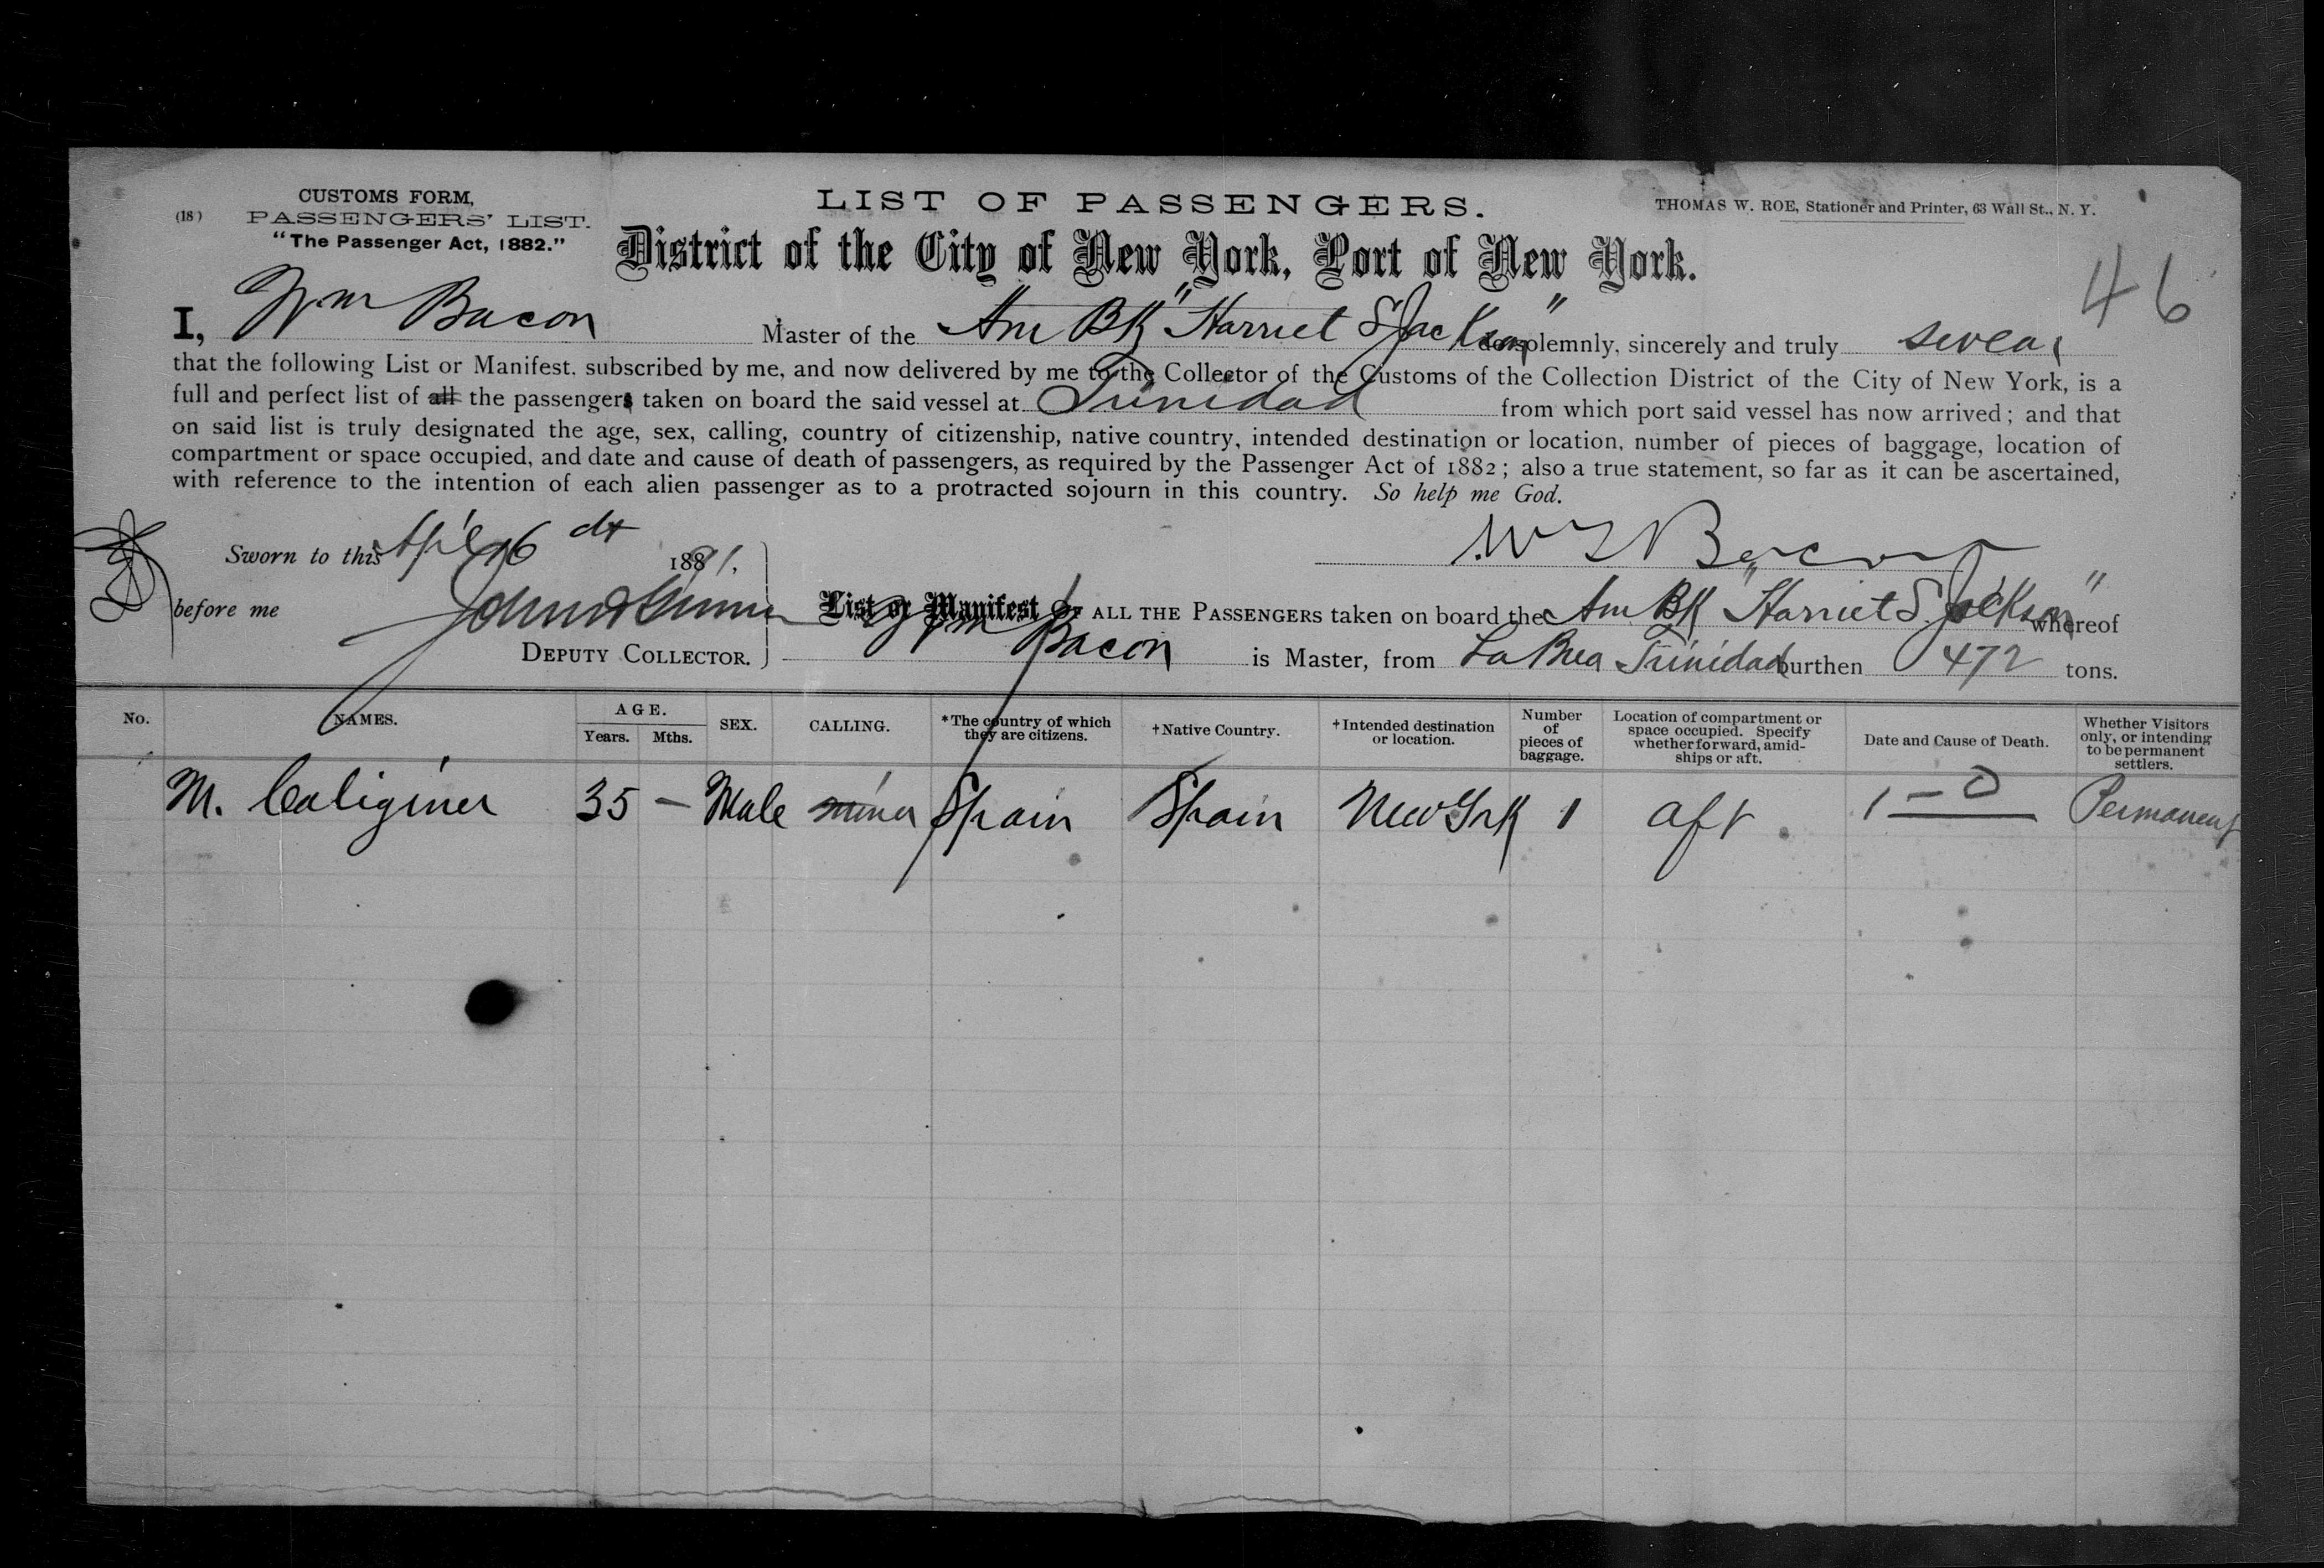 CUSTOMS FORM,
(18) PASSENGERS' LIST.
"The Passenger Act, 1882."
LIST OF PASSENGERS.
THOMAS W. ROE, Stationer and Printer, 63 Wall St., N. Y.
District of the City of New York, Port of New York.
46
I, Wm Bacon Master of the Am Bk "Harriet S Jackson" do solemnly, sincerely and truly swear
that the following List or Manifest, subscribed by me, and now delivered by me to the Collector of the Customs of the Collection District of the City of New York, is a
full and perfect list of all the passengers taken on board the said vessel at Trinidad from which port said vessel has now arrived; and that
on said list is truly designated the age, sex, calling, country of citizenship, native country, intended destination or location, number of pieces of baggage, location of
compartment or space occupied, and date and cause of death of passengers, as required by the Passenger Act of 1882; also a true statement, so far as it can be ascertained,
with reference to the intention of each alien passenger as to a protracted sojourn in this country. So help me God.
Sworn to this April 16 1891, W Bacon
before me John
DEPUTY COLLECTOR.
List or Manifest OF ALL THE PASSENGERS taken on board the Am Bk "Harriet S. Jackson" whereof
Wm Bacon is Master, from La Brea Trinidad burthen 472 tons.
No. NAMES. AGE. Years. Mths. SEX. CALLING. *The country of which they are citizens. †Native Country. †Intended destination or location. Number of pieces of baggage. Location of compartment or space occupied. Specify whether forward, amidships or aft. Date and Cause of Death. Whether Visitors only, or intending to be permanent settlers.
M. Caliginer 35 — Male miner Spain Spain New York 1 aft 1 — 0 Permanent